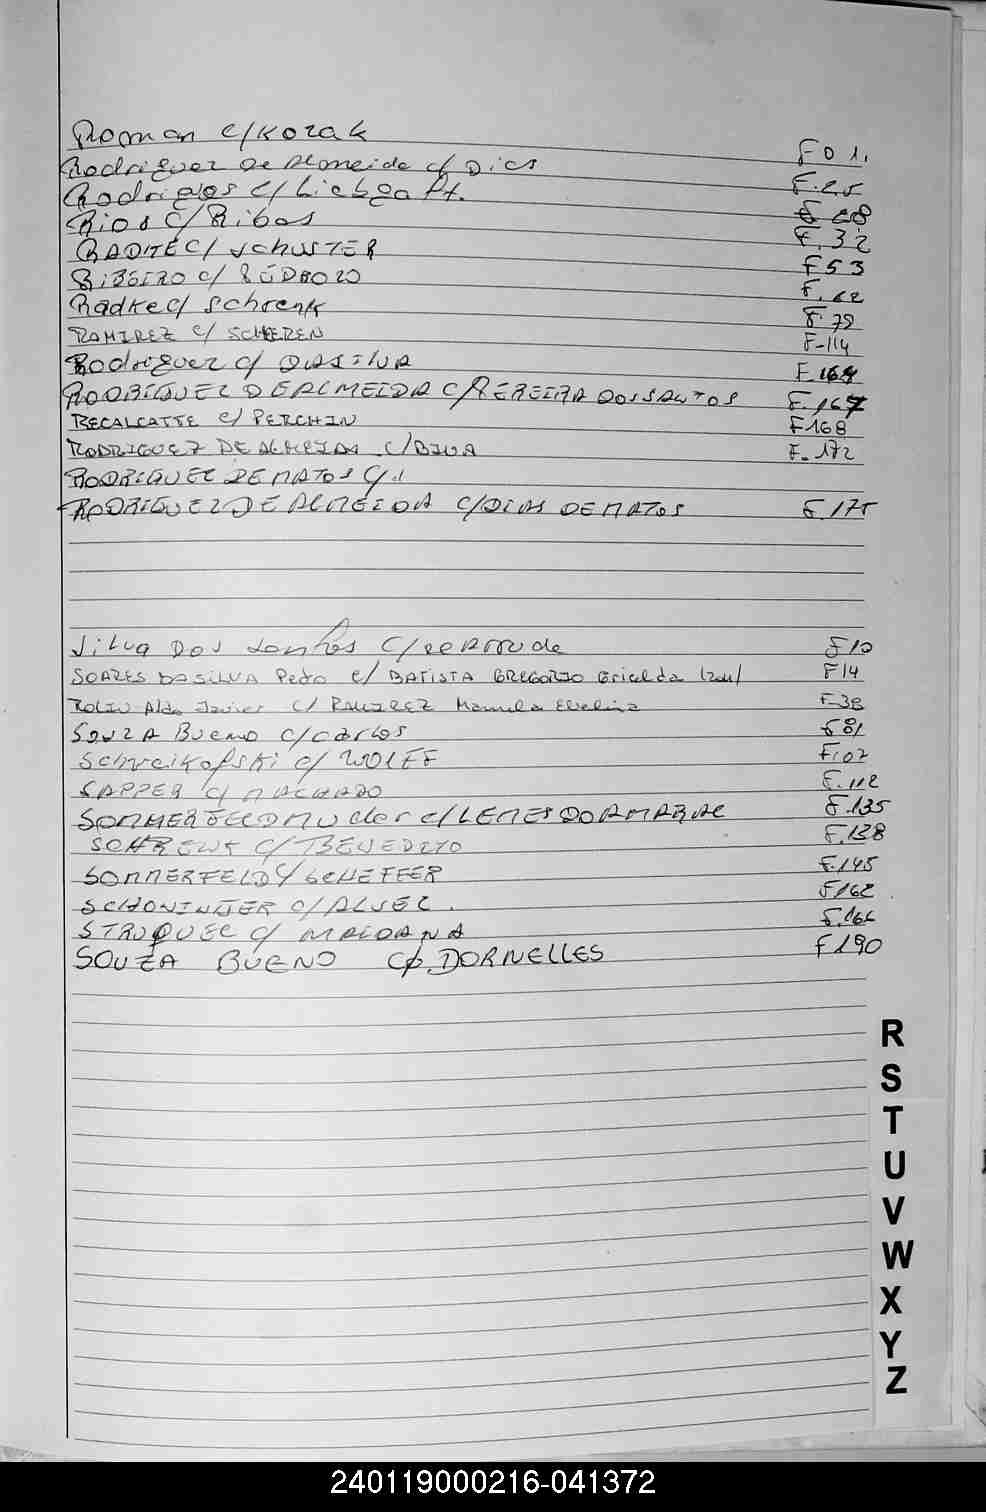 Roman c/Kozak F 01.
Rodriguez De Almeida c/ Dias F.25
Rodrigos c/ Liebga Pt. F 28
Rios c/ Ribas F. 32
RADTKE c/ SCHUSTER F 53
RIBEIRO c/ F. 62
Radke c/ Schrenk F. 79
RAMIREZ c/ SCHEREN F-114
Rodriguez c/ DA SILVA F. 164
RODRIGUEZ DE ALMEIDA c/ PEREIRA DOS SANTOS F. 167
RECALCATTE c/ PERCHIN F 168
RODRIGUEZ DE ALMEIDA c/ F. 172
RODRIGUEZ DE MATOS c/
RODRIGUEZ DE ALMEIDA c/ DIAS DE MATOS F. 175
Silva Dos Santos c/ F 10
SOARES DA SILVA Pedro c/ BATISTA GREGORIO Griselda F 14
ROLIN Aldo Javier c/ RAMIREZ Manuela Evelina F-38
SOUZA Bueno c/ carlos F 81
Schveikofski c/ WOLFF F. 07
SAPPER c/ MACHADO F. 112
SOMMERFELD c/ LEMES DO AMARAL F. 135
SCHRENK c/ BENEDITO F. 138
SOMMERFELD c/ SCHEFFER F. 145
SCHONINGER c/ ALVEZ. F 162
c/ MALDANA F. 166
SOUZA BUENO c/ DORNELLES F 190
R
S
T
U
V
W
X
Y
Z
240119000216-041372